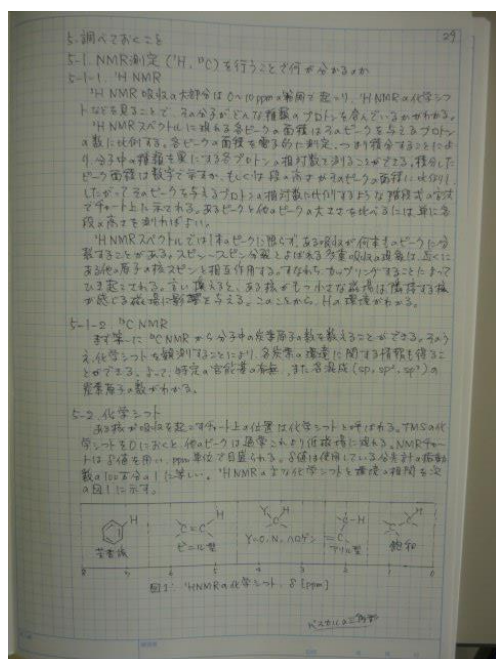 29
5. 調べておくこと
5-1. NMR測定 (¹H, ¹³C)を行うことで何が分かるのか
5-1-1. ¹H NMR
¹H NMR吸収の大部分は0~10ppmの範囲で起こり、¹HNMRの化学シフ
トなどを見ることで、その分子がどんな種類のプロトンを含んでいるかがわかる。
¹H NMRスペクトルに現れる各ピークの面積はそのピークを与えるプロトン
の数に比例する。各ピークの面積を電子的に測定、つまり積分することによ
り、分子中の種類を異にする各プロトンの相対数を測ることができる。積分した
ピーク面積は数字で示すか、もしくは段の高さがそのピークの面積に比例し
したがってそのピークを与えるプロトンの相対数に比例するような階段式の方式
でチャート上に示される。あるピークと他のピークの大きさを比べるには、単に各
段の高さを測ればよい。
¹H NMRスペクトルでは1本のピークに限らず、ある吸収が何本ものピークに分
裂することがある。スピン-スピン分裂とよばれる多重吸収の現象は、近くに
ある他の原子の核スピンと相互作用する。すなわち、カップリングすることによって
ひき起こされる。言い換えると、ある核がもつ小さな磁場は隣接する核
が感じる磁場に影響を与える。このことから、Hの環境がわかる。
5-1-2 ¹³C NMR
まず第一に¹³C NMRから分子中の炭素原子の数を数えることができる。そのう
え、化学シフトを観測することにより、各炭素の環境に関する情報も得るこ
とができる。よって、特定の官能基の有無、また各混成(sp, sp², sp³)の
炭素原子の数がわかる。
5-2. 化学シフト
ある核が吸収を起こすチャート上の位置は化学シフトと呼ばれる。TMSの化
学シフトを0におくと、他のピークは通常これより低磁場に現れる。NMRチャー
トはδ値を用い、ppm単位で目盛られる。δ値は使用している分光計の振動
数の100万分の1に等しい。¹HNMRの主な化学シフトと環境の相関を次
の図1に示す。
H
芳香族
C=C H
ビニル型
Y C H
Y=O, N, ハロゲン
C-H
C=C
アリル型
H
飽和
8 7 6 5 4 3 2 1 0
図1: ¹HNMRの化学シフト δ [ppm]